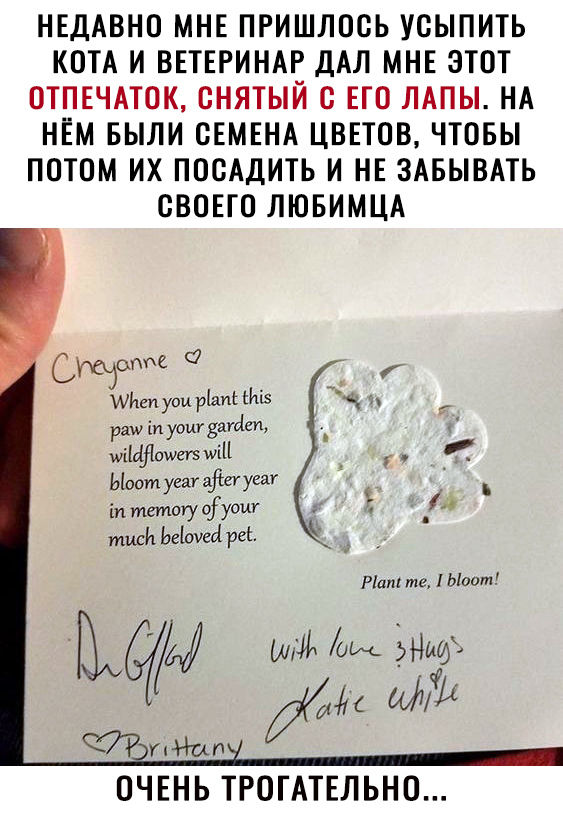 НЕДАВНО МНЕ ПРИШЛОСЬ УСЫПИТЬ
КОТА И ВЕТЕРИНАР ДАЛ МНЕ ЭТОТ
ОТПЕЧАТОК, СНЯТЫЙ С ЕГО ЛАПЫ. НА
НЁМ БЫЛИ СЕМЕНА ЦВЕТОВ, ЧТОБЫ
ПОТОМ ИХ ПОСАДИТЬ И НЕ ЗАБЫВАТЬ
СВОЕГО ЛЮБИМЦА
Cheyanne ♡
When you plant this
paw in your garden,
wildflowers will
bloom year after year
in memory of your
much beloved pet.
Plant me, I bloom!
with love & Hugs
Katie White
♡Brittany
ОЧЕНЬ ТРОГАТЕЛЬНО...